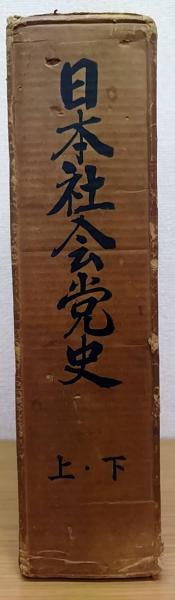 日本社会党史
上・下